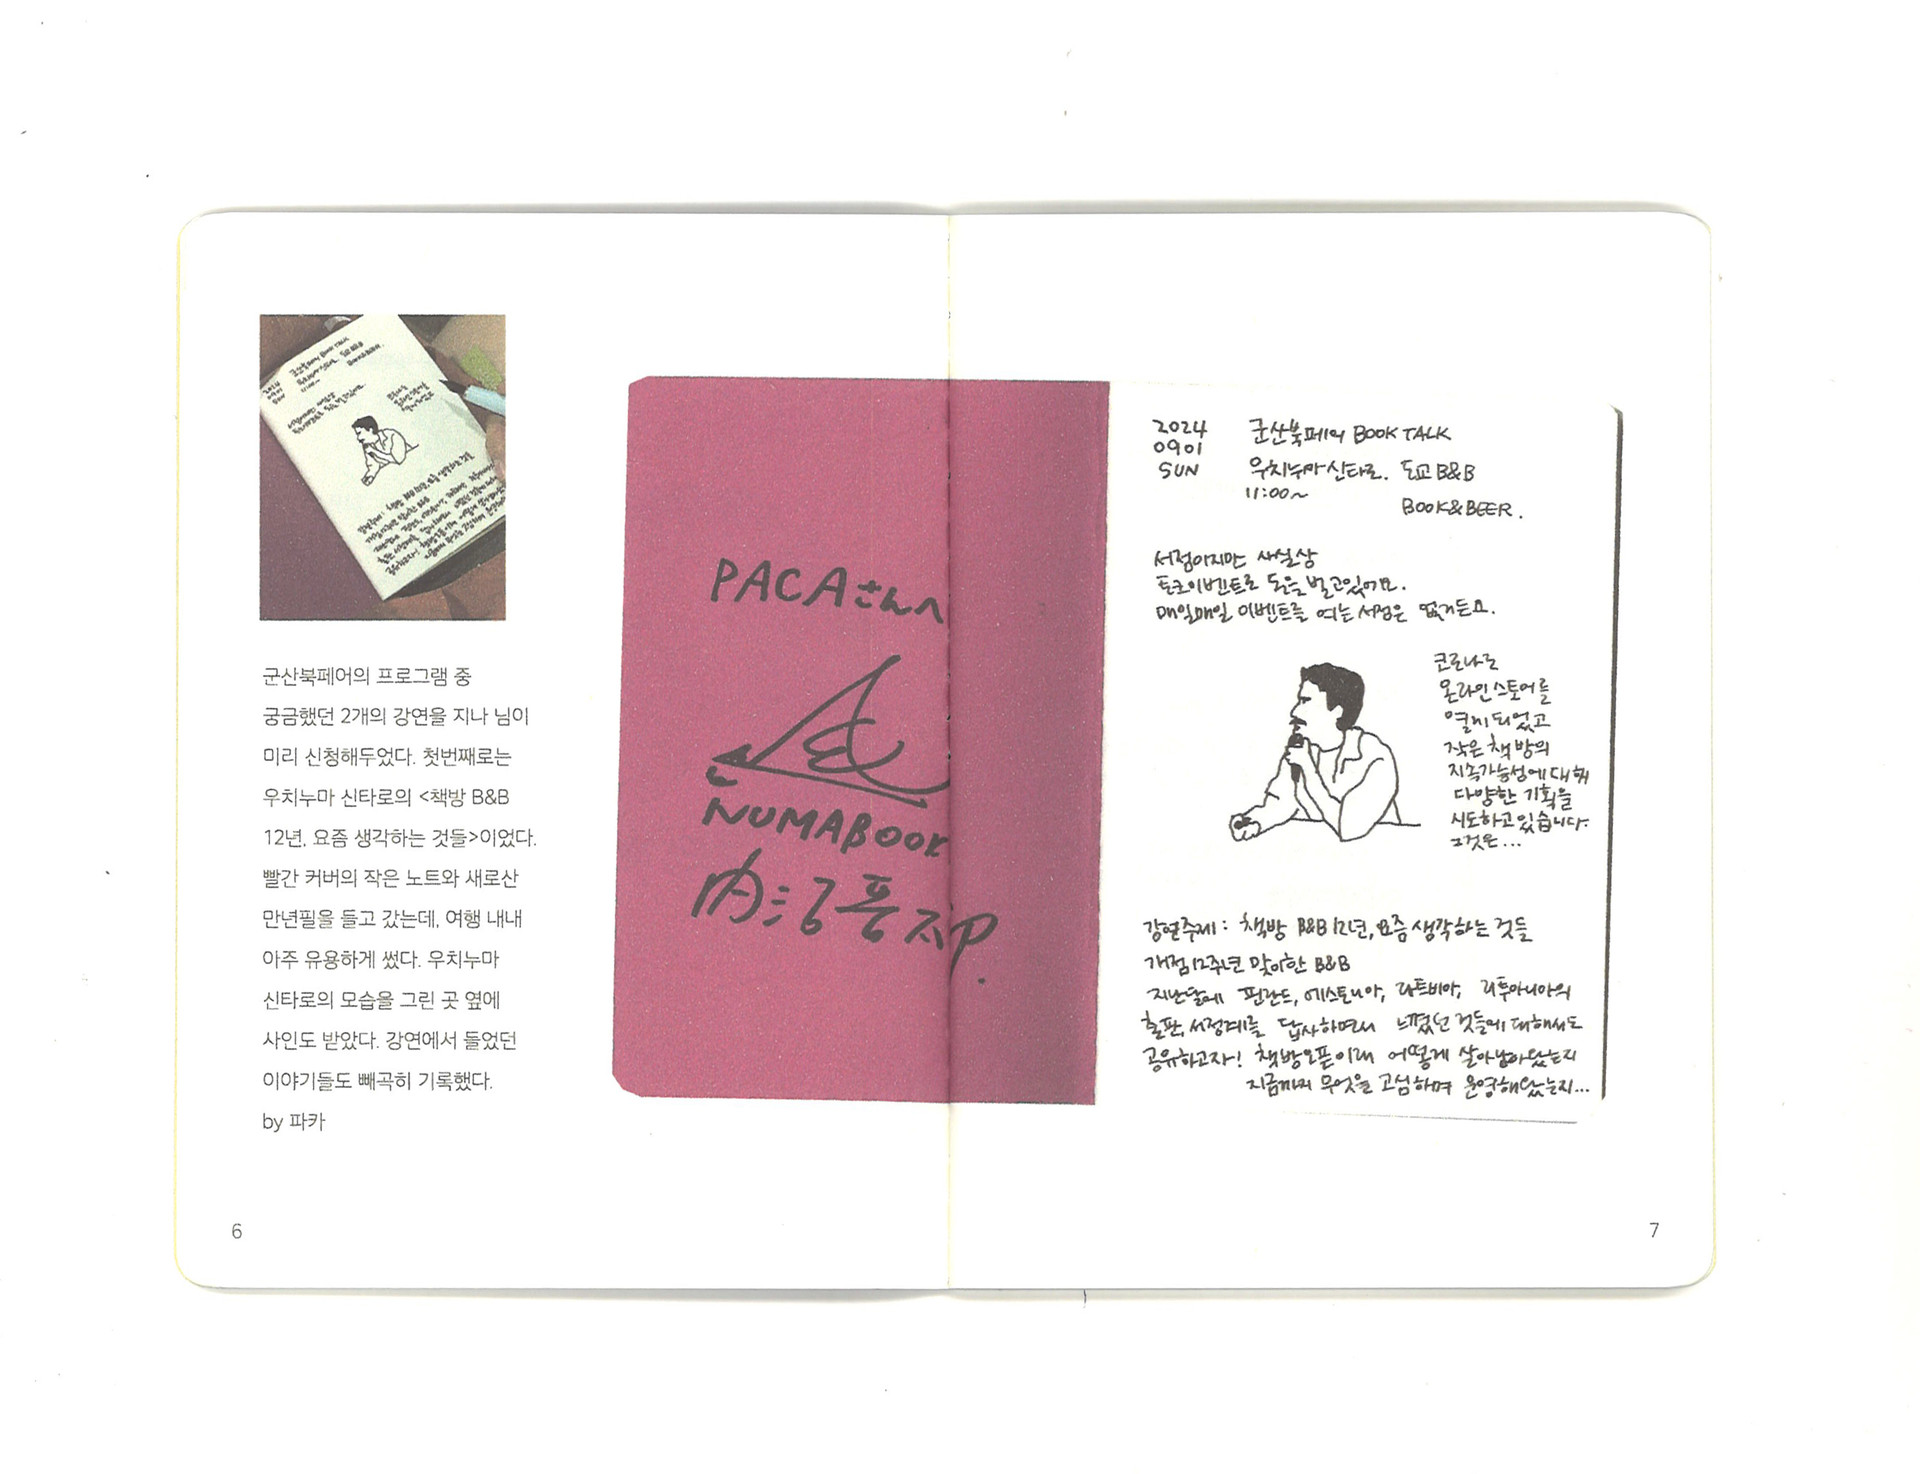 군산북페어의 프로그램 중
궁금했던 2개의 강연을 지나 님이
미리 신청해두었다. 첫번째로는
우치누마 신타로의 <책방 B&B
12년, 요즘 생각하는 것들>이었다.
빨간 커버의 작은 노트와 새로산
만년필을 들고 갔는데, 여행 내내
아주 유용하게 썼다. 우치누마
신타로의 모습을 그린 곳 옆에
사인도 받았다. 강연에서 들었던
이야기들도 빼곡히 기록했다.
by 파카
6
PACAさんへ
NUMABOOK
内沼晋太郎
2024
0901
SUN
군산북페어 BOOK TALK
우치누마 신타로. 도쿄 B&B
11:00~
BOOK&BEER.
서점이지만 사실상
토크이벤트로 돈을 벌고있어요.
매일매일 이벤트를 여는 서점은 없거든요.
코로나로
온라인스토어를
열게 되었고
작은 책방의
지속가능성에 대해
다양한 기획을
시도하고 있습니다.
그것은...
강연주제: 책방 B&B 12년, 요즘 생각하는 것들
개점12주년 맞이한 B&B
지난달에 핀란드, 에스토니아, 라트비아, 리투아니아의
출판, 서점계를 답사하면서 느꼈던 것들에 대해서도
공유하고자! 책방오픈이래 어떻게 살아남아왔는지
지금까지 무엇을 고심하며 운영해왔는지...
7